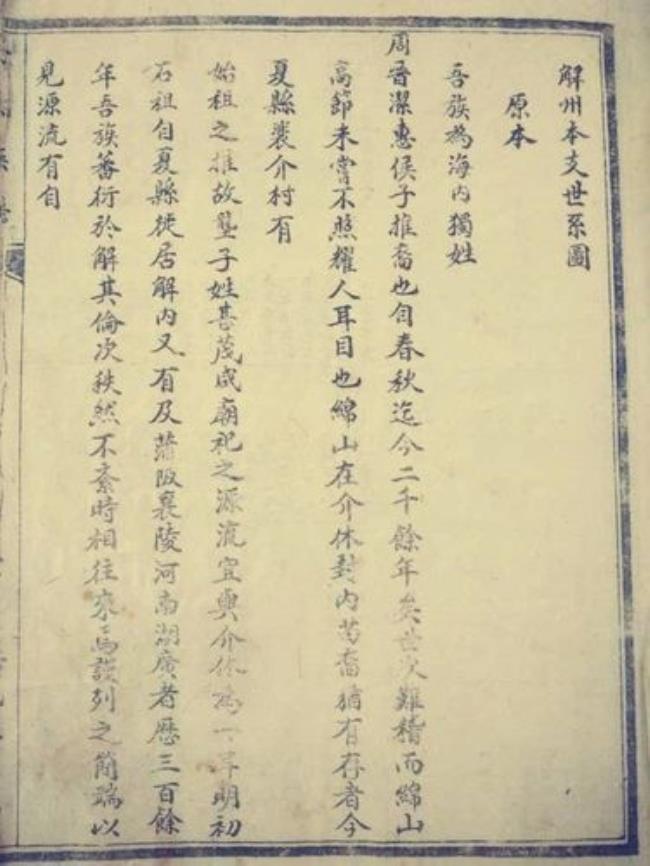 解州本支世系圖
原本
吾族為海內獨姓
周晉潔惠侯子推裔也自春秋迄今二千餘年矣世次難稽而綿山
高節未嘗不照耀人耳目也綿山在介休封內苗裔猶有存者今
夏縣裴介村有
始祖之推故塋子姓甚茂咸廟祀之源流宜與介休為一
明初
石祖自夏縣徙居解內又有及蒲阪襄陵河南湖廣者歷三百餘
年吾族蕃衍於解其倫次秩然不紊時相往來焉談列之簡端以
見源流有自